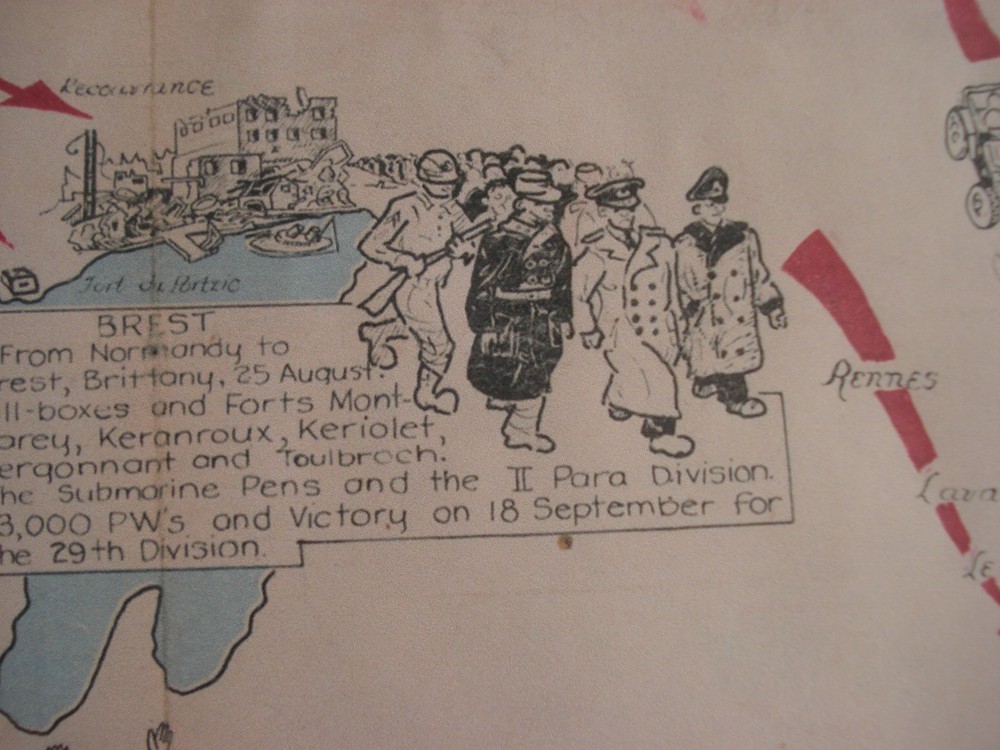 Recouvrance
Fort du Portzic
BREST
From Normandy to
rest, Brittany, 25 August.
ll-boxes and Forts Mont-
barey, Keranroux, Keriolet,
ergonnant and Toulbroch.
he Submarine Pens and the II Para Division.
3,000 PW's and Victory on 18 September for
he 29th Division.
RENNES
Lava
Le